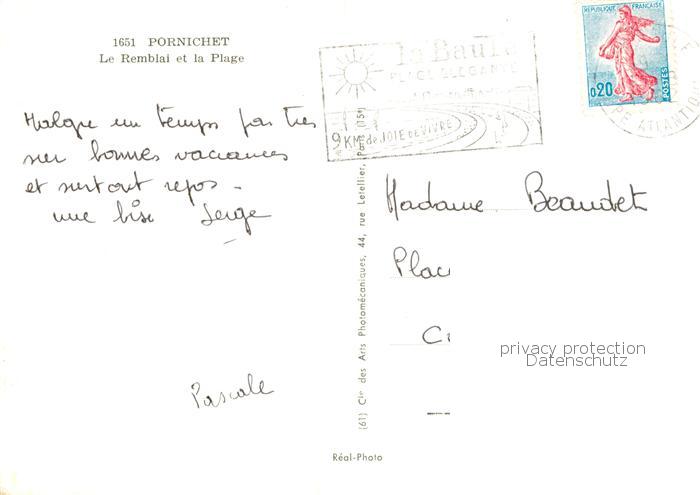 1651 PORNICHET
Le Remblai et la Plage
Malgre un temps pas tres
sur bonnes vacances
et surtout repos -
une bise Serge
Pascale
la Baule
PLAGE ELEGANTE
9 KM de JOIE DE VIVRE
REPUBLIQUE FRANÇAISE
0,20
POSTES
ATLANTIQUE
Madame Beaudet
Plac
C
privacy protection
Datenschutz
(61) Cie des Arts Photomécaniques, 44, rue Letellier, Paris (15e)
Réal-Photo